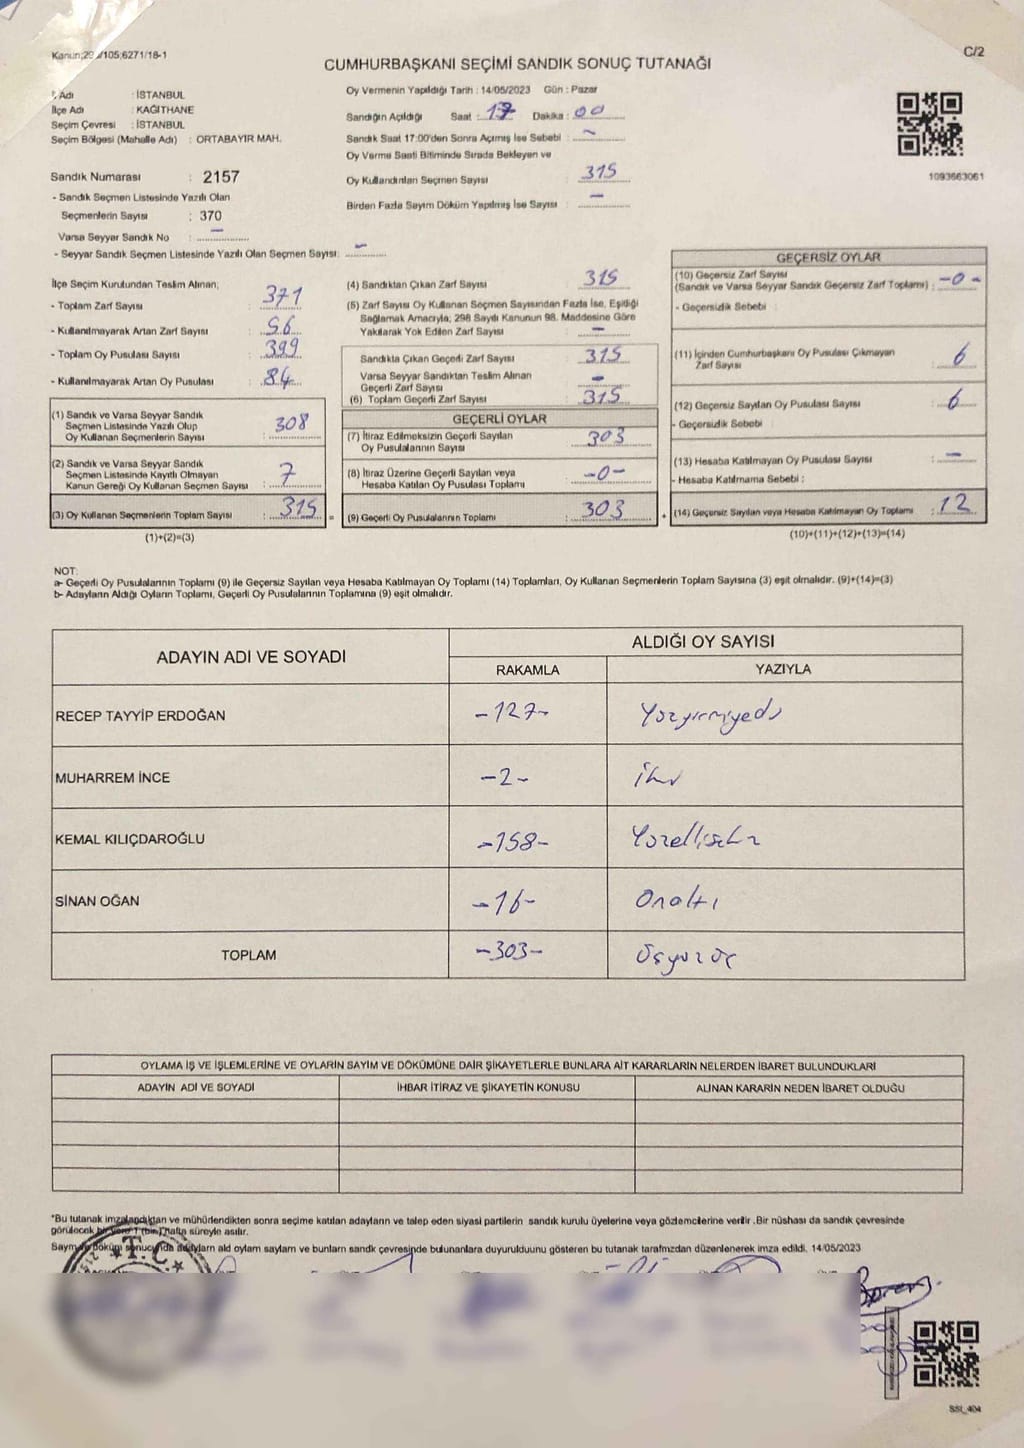 Kanun;29 /105;6271/18-1
C/2
CUMHURBAŞKANI SEÇİMİ SANDIK SONUÇ TUTANAĞI
İl Adı : İSTANBUL
İlçe Adı : KAĞITHANE
Seçim Çevresi : İSTANBUL
Seçim Bölgesi (Mahalle Adı) : ORTABAYIR MAH.
Sandık Numarası : 2157
- Sandık Seçmen Listesinde Yazılı Olan
Seçmenlerin Sayısı : 370
Varsa Seyyar Sandık No : –
- Seyyar Sandık Seçmen Listesinde Yazılı Olan Seçmen Sayısı: –
Oy Vermenin Yapıldığı Tarih : 14/05/2023 Gün : Pazar
Sandığın Açıldığı Saat : 17 Dakika : 00
Sandık Saat 17:00'den Sonra Açılmış İse Sebebi : ~
Oy Verme Saati Bitiminde Sırada Bekleyen ve
Oy Kullandırılan Seçmen Sayısı : 315
Birden Fazla Sayım Döküm Yapılmış İse Sayısı : –
1093663061
İlçe Seçim Kurulundan Teslim Alınan;
- Toplam Zarf Sayısı : 371
- Kullanılmayarak Artan Zarf Sayısı : 56
- Toplam Oy Pusulası Sayısı : 399
- Kullanılmayarak Artan Oy Pusulası : 84
(1) Sandık ve Varsa Seyyar Sandık
Seçmen Listesinde Yazılı Olup
Oy Kullanan Seçmenlerin Sayısı : 308
(2) Sandık ve Varsa Seyyar Sandık
Seçmen Listesinde Kayıtlı Olmayan
Kanun Gereği Oy Kullanan Seçmen Sayısı : 7
(3) Oy Kullanan Seçmenlerin Toplam Sayısı : 315 =
(1)+(2)=(3)
(4) Sandıktan Çıkan Zarf Sayısı : 315
(5) Zarf Sayısı Oy Kullanan Seçmen Sayısından Fazla İse, Eşitliği
Sağlamak Amacıyla; 298 Sayılı Kanunun 98. Maddesine Göre
Yakılarak Yok Edilen Zarf Sayısı : –
Sandıkta Çıkan Geçerli Zarf Sayısı : 315
Varsa Seyyar Sandıktan Teslim Alınan
Geçerli Zarf Sayısı : –
(6) Toplam Geçerli Zarf Sayısı : 315
GEÇERLİ OYLAR
(7) İtiraz Edilmeksizin Geçerli Sayılan
Oy Pusulalarının Sayısı : 303
(8) İtiraz Üzerine Geçerli Sayılan veya
Hesaba Katılan Oy Pusulası Toplamı : -0-
(9) Geçerli Oy Pusulalarının Toplamı : 303 +
GEÇERSİZ OYLAR
(10) Geçersiz Zarf Sayısı
(Sandık ve Varsa Seyyar Sandık Geçersiz Zarf Toplamı) : -0-
- Geçersizlik Sebebi :
(11) İçinden Cumhurbaşkanı Oy Pusulası Çıkmayan
Zarf Sayısı : 6
(12) Geçersiz Sayılan Oy Pusulası Sayısı : 6
- Geçersizlik Sebebi :
(13) Hesaba Katılmayan Oy Pusulası Sayısı : –
- Hesaba Katılmama Sebebi :
(14) Geçersiz Sayılan veya Hesaba Katılmayan Oy Toplamı : 12
(10)+(11)+(12)+(13)=(14)
NOT:
a- Geçerli Oy Pusulalarının Toplamı (9) ile Geçersiz Sayılan veya Hesaba Katılmayan Oy Toplamı (14) Toplamları, Oy Kullanan Seçmenlerin Toplam Sayısına (3) eşit olmalıdır. (9)+(14)=(3)
b- Adayların Aldığı Oyların Toplamı, Geçerli Oy Pusulalarının Toplamına (9) eşit olmalıdır.
ADAYIN ADI VE SOYADI
ALDIĞI OY SAYISI
RAKAMLA YAZIYLA
RECEP TAYYİP ERDOĞAN -127- Yüzyirmiyedi
MUHARREM İNCE -2- iki
KEMAL KILIÇDAROĞLU -158- Yüzellisekiz
SİNAN OĞAN -16- Onaltı
TOPLAM -303- Üçyüzüç
OYLAMA İŞ VE İŞLEMLERİNE VE OYLARIN SAYIM VE DÖKÜMÜNE DAİR ŞİKAYETLERLE BUNLARA AİT KARARLARIN NELERDEN İBARET BULUNDUKLARI
ADAYIN ADI VE SOYADI İHBAR İTİRAZ VE ŞİKAYETİN KONUSU ALINAN KARARIN NEDEN İBARET OLDUĞU
*Bu tutanak imzalandıktan ve mühürlendikten sonra seçime katılan adayların ve talep eden siyasi partilerin sandık kurulu üyelerine veya gözlemcilerine verilir .Bir nüshası da sandık çevresinde
görülecek bir yere 1 (bir) hafta süreyle asılır.
Saym döküm sonucunda adayların ald oylarn saylarn ve bunların sandk çevresinde bulunanlara duyurulduunu gösteren bu tutanak tarafmzdan düzenlenerek imza edildi. 14/05/2023
T.C.
SSI_404